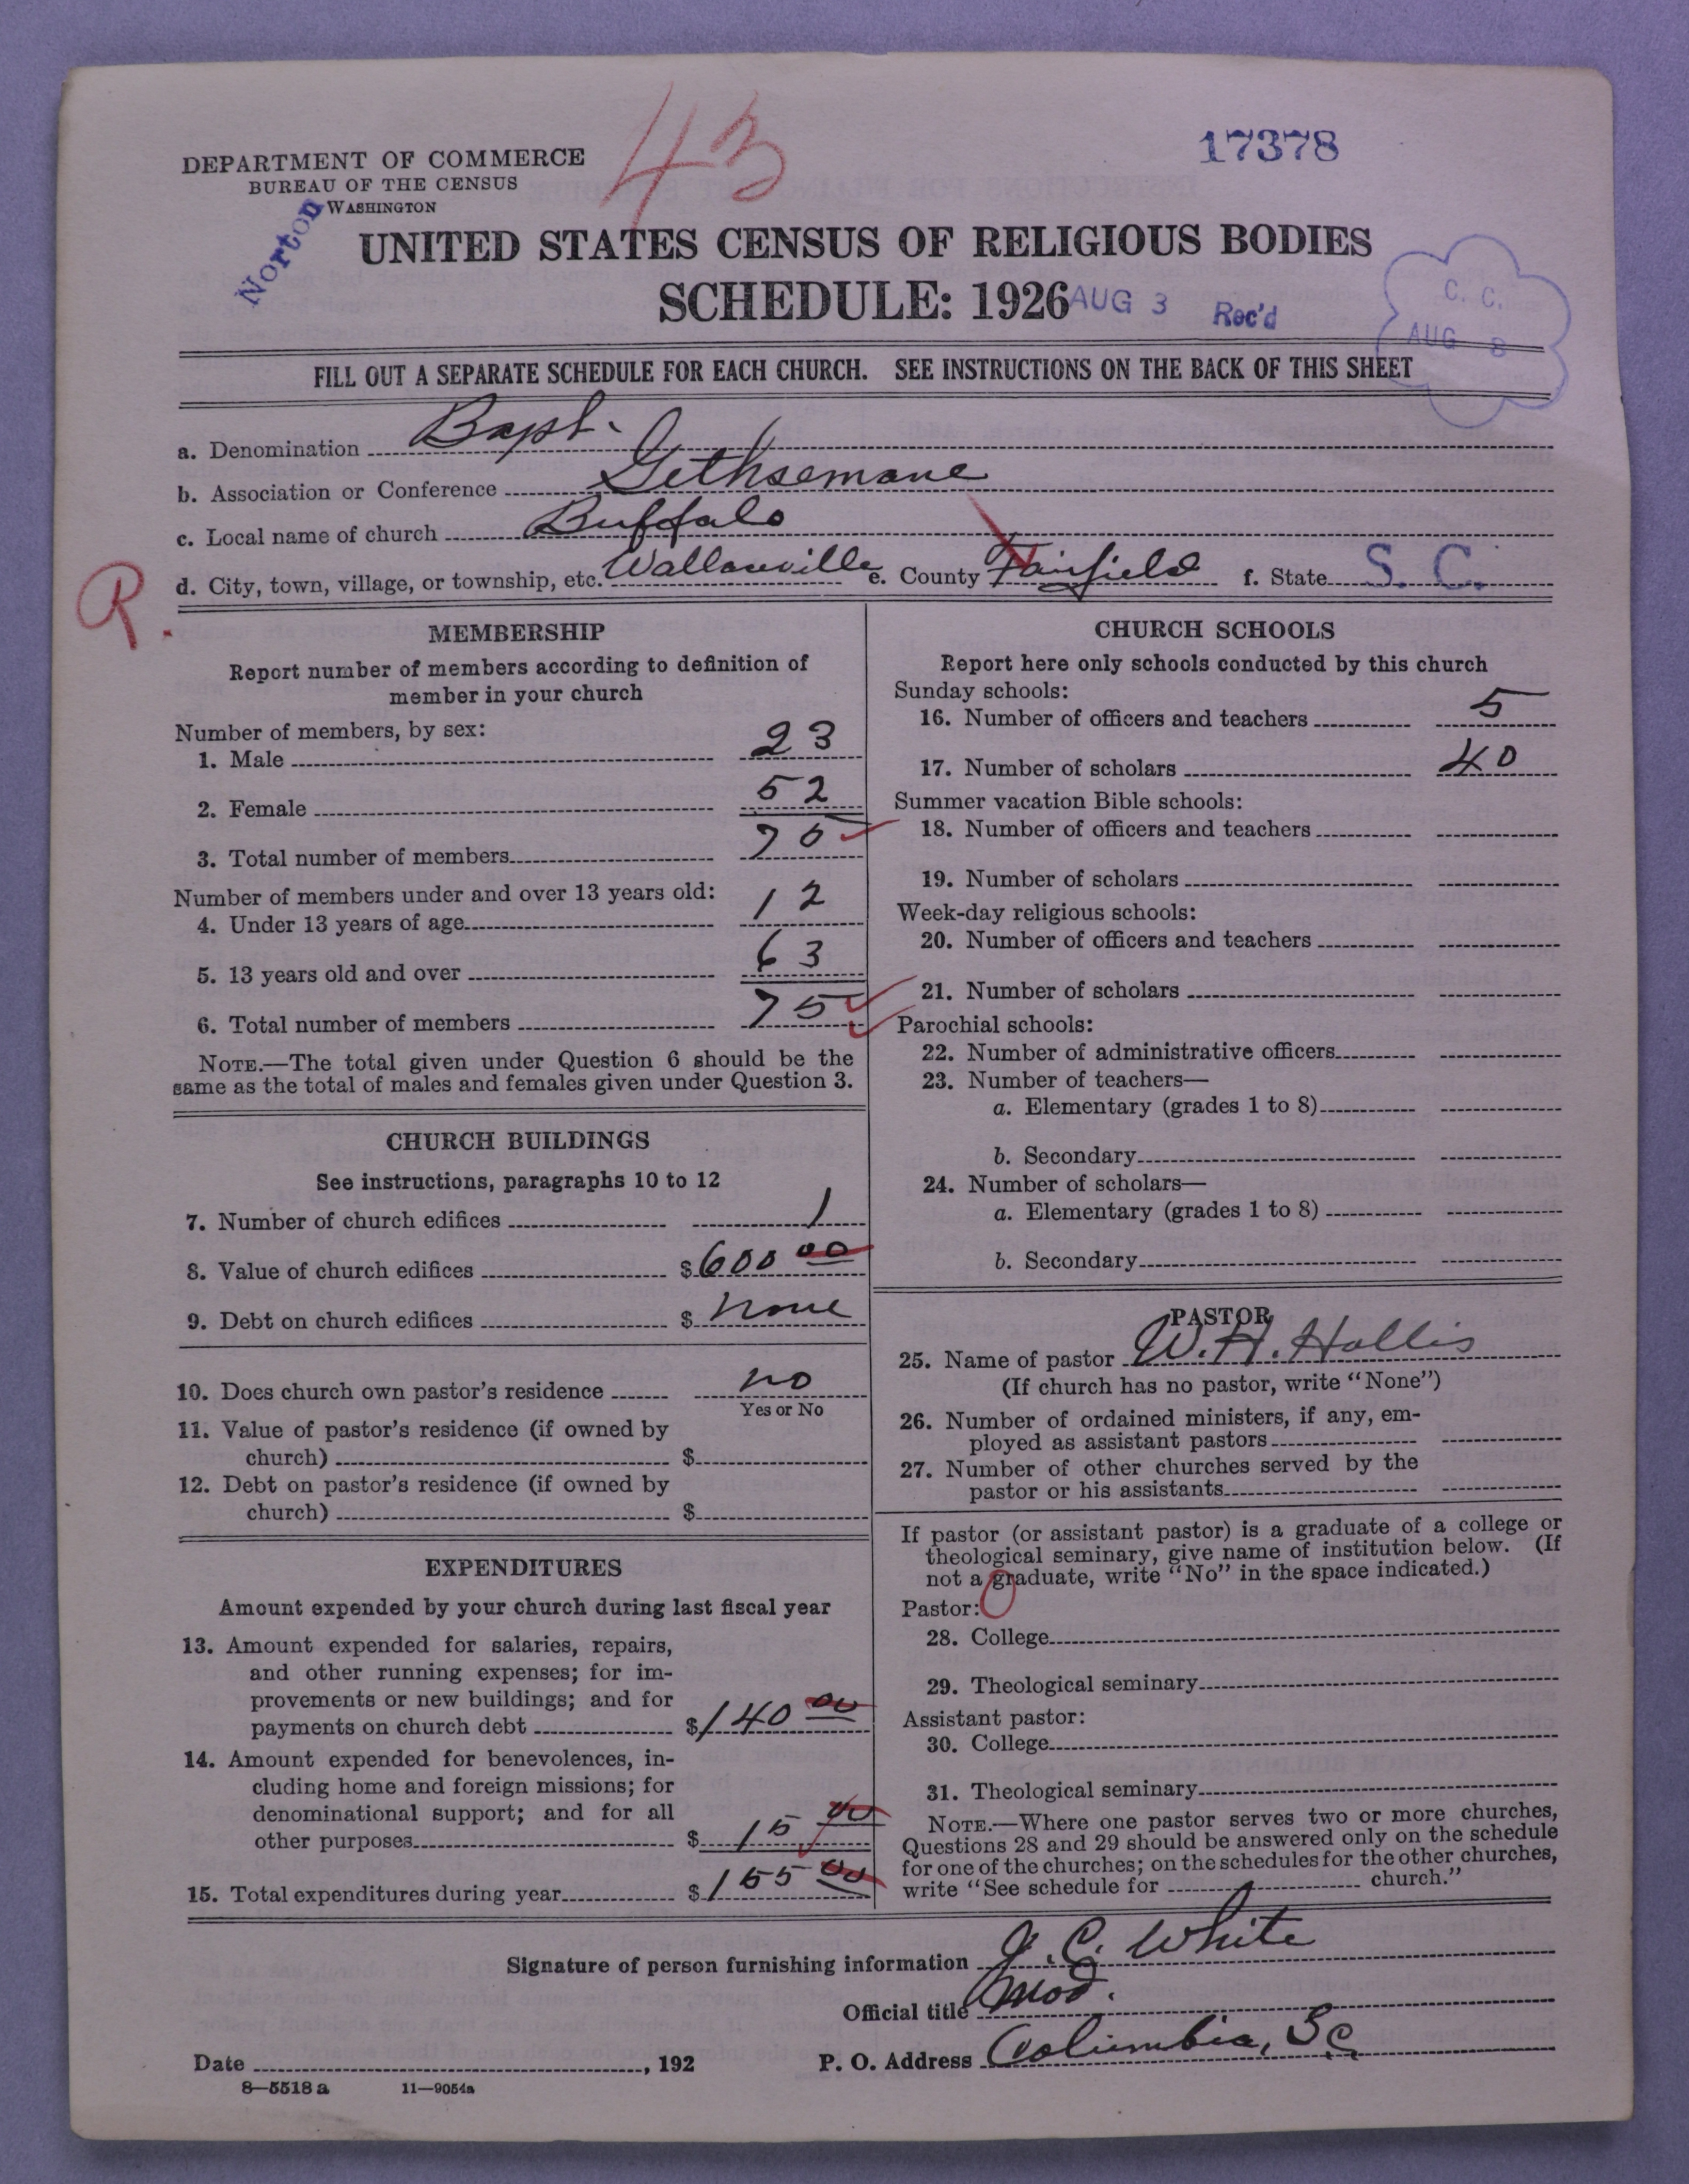 43
17378
DEPARTMENT OF COMMERCE
BUREAU OF THE CENSUS
WASHINGTON
Norton
UNITED STATES CENSUS OF RELIGIOUS BODIES
SCHEDULE: 1926
AUG 3 Rec'd
C. C.
AUG 8
FILL OUT A SEPARATE SCHEDULE FOR EACH CHURCH. SEE INSTRUCTIONS ON THE BACK OF THIS SHEET
a. Denomination Bapt.
b. Association or Conference Gethsemane
c. Local name of church Buffalo
d. City, town, village, or township, etc. Wallaceville e. County Fairfield f. State S. C.
R.
MEMBERSHIP
Report number of members according to definition of
member in your church
Number of members, by sex:
1. Male 23
2. Female 52
3. Total number of members 75
Number of members under and over 13 years old:
4. Under 13 years of age 12
5. 13 years old and over 63
6. Total number of members 75
NOTE.—The total given under Question 6 should be the
same as the total of males and females given under Question 3.
CHURCH BUILDINGS
See instructions, paragraphs 10 to 12
7. Number of church edifices 1
8. Value of church edifices $600 00
9. Debt on church edifices $ none
10. Does church own pastor's residence no
Yes or No
11. Value of pastor's residence (if owned by
church) $
12. Debt on pastor's residence (if owned by
church) $
EXPENDITURES
Amount expended by your church during last fiscal year
13. Amount expended for salaries, repairs,
and other running expenses; for im-
provements or new buildings; and for
payments on church debt $140 00
14. Amount expended for benevolences, in-
cluding home and foreign missions; for
denominational support; and for all
other purposes $15 00
15. Total expenditures during year $155 00
CHURCH SCHOOLS
Report here only schools conducted by this church
Sunday schools:
16. Number of officers and teachers 5
17. Number of scholars 40
Summer vacation Bible schools:
18. Number of officers and teachers
19. Number of scholars
Week-day religious schools:
20. Number of officers and teachers
21. Number of scholars
Parochial schools:
22. Number of administrative officers
23. Number of teachers—
a. Elementary (grades 1 to 8)
b. Secondary
24. Number of scholars—
a. Elementary (grades 1 to 8)
b. Secondary
PASTOR
25. Name of pastor W. H. Hollis
(If church has no pastor, write "None")
26. Number of ordained ministers, if any, em-
ployed as assistant pastors
27. Number of other churches served by the
pastor or his assistants
If pastor (or assistant pastor) is a graduate of a college or
theological seminary, give name of institution below. (If
not a graduate, write "No" in the space indicated.)
Pastor: 0
28. College
29. Theological seminary
Assistant pastor:
30. College
31. Theological seminary
NOTE.—Where one pastor serves two or more churches,
Questions 28 and 29 should be answered only on the schedule
for one of the churches; on the schedules for the other churches,
write "See schedule for church."
Signature of person furnishing information J. C. White
Official title Mod.
Date , 192 P. O. Address Columbia, S.C.
8—5518 a 11—9054a